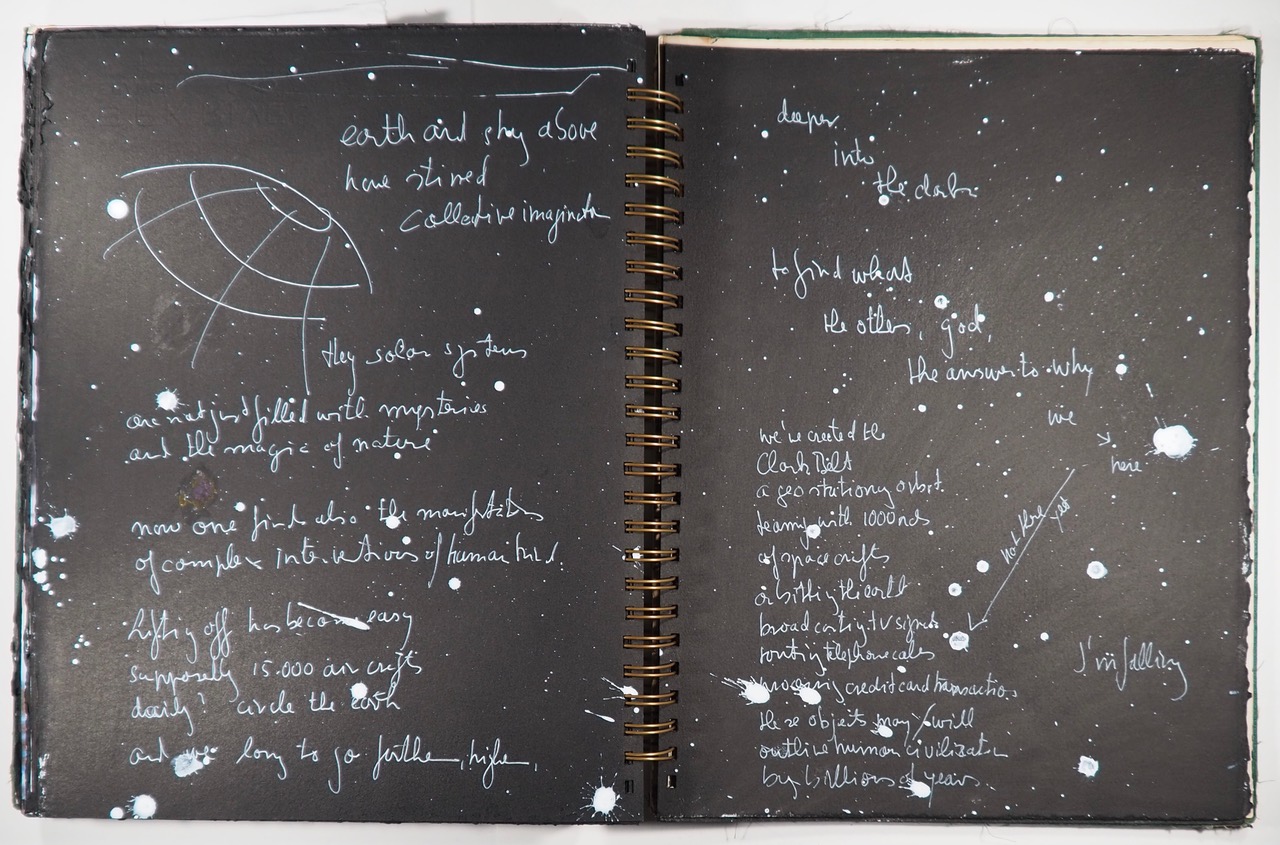 earth and sky above
have stirred
collective imagination
they solar systems
are not just filled with mysteries
and the magic of nature
now one finds also the manifestations
of complex interventions of human kind.
lifting off has become easy
supposedly 15.000 air crafts
daily circle the earth
and we long to go further, higher,
deeper
into
the dark
to find what's
the other, god,
the answer to why
we
here
we've created the
Clark Belt
a geo stationary orbit
teaming with 1000nds
of space crafts
orbiting the world
broadcasting TV signals
routing telephone calls
processing credit card transactions
these objects may/will
outlive human civilization
by billions of years.
not there
yet
I'm falling